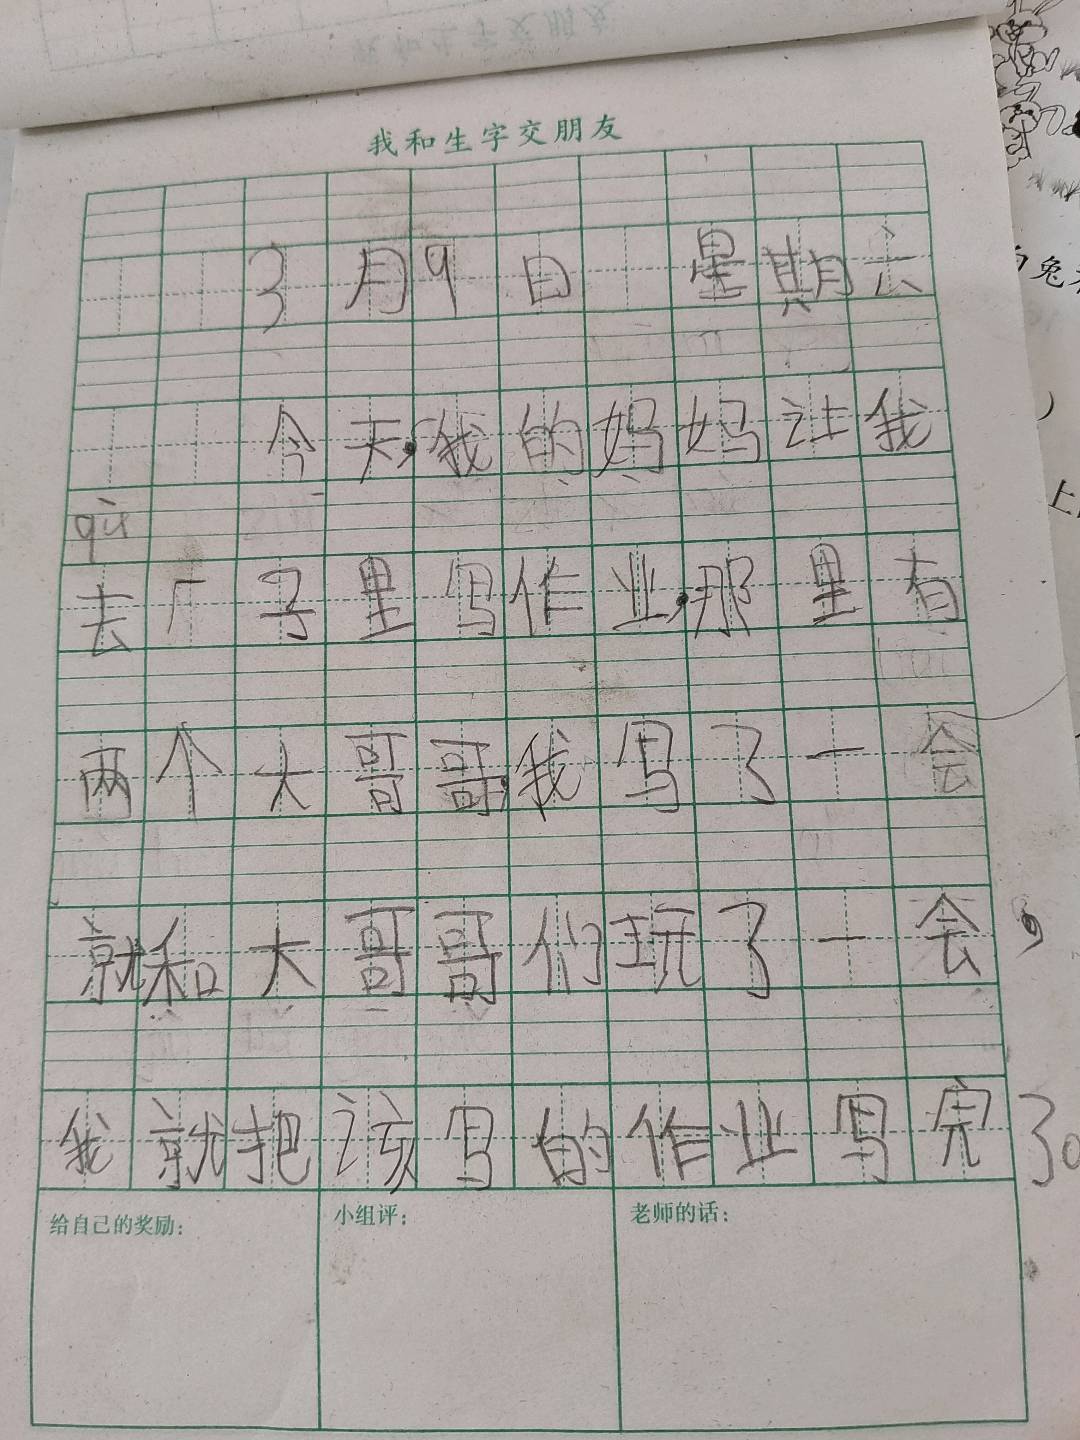 我和生字交朋友
3月9日 星期六
今天,我的妈妈让我
qù
去厂子里写作业,那里有
两个大哥哥,我写了一会
就和大哥哥们玩了一会,
我就把该写的作业写完了。
给自己的奖励:
小组评:
老师的话: